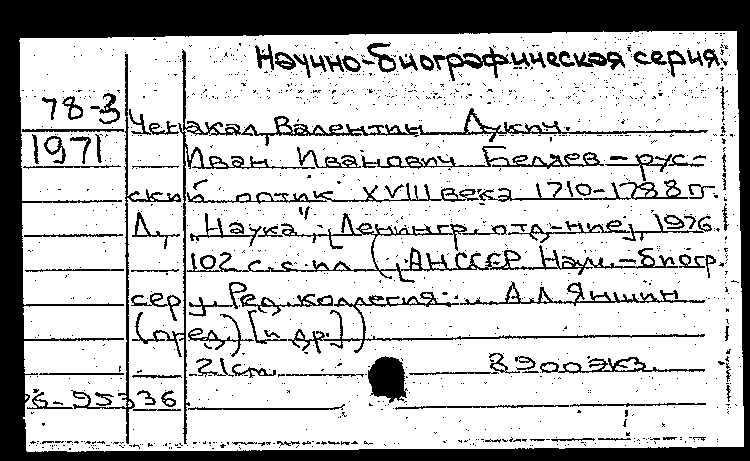 Научно-биографическая серия.
78-3
Ченакал, Валентин Лукич.
1971
Иван Иванович Беляев – рус-
ский оптик XVIII века 1710-1788 гг.
Л., „Наука", [Ленингр. отд-ние], 1976.
102 с. с ил. ([АН СССР. Науч.-биогр.
сер.]. Ред. коллегия: ... А.Л. Яншин
(пред.) [и др.]).
21 см. 8900 экз.
76-95336